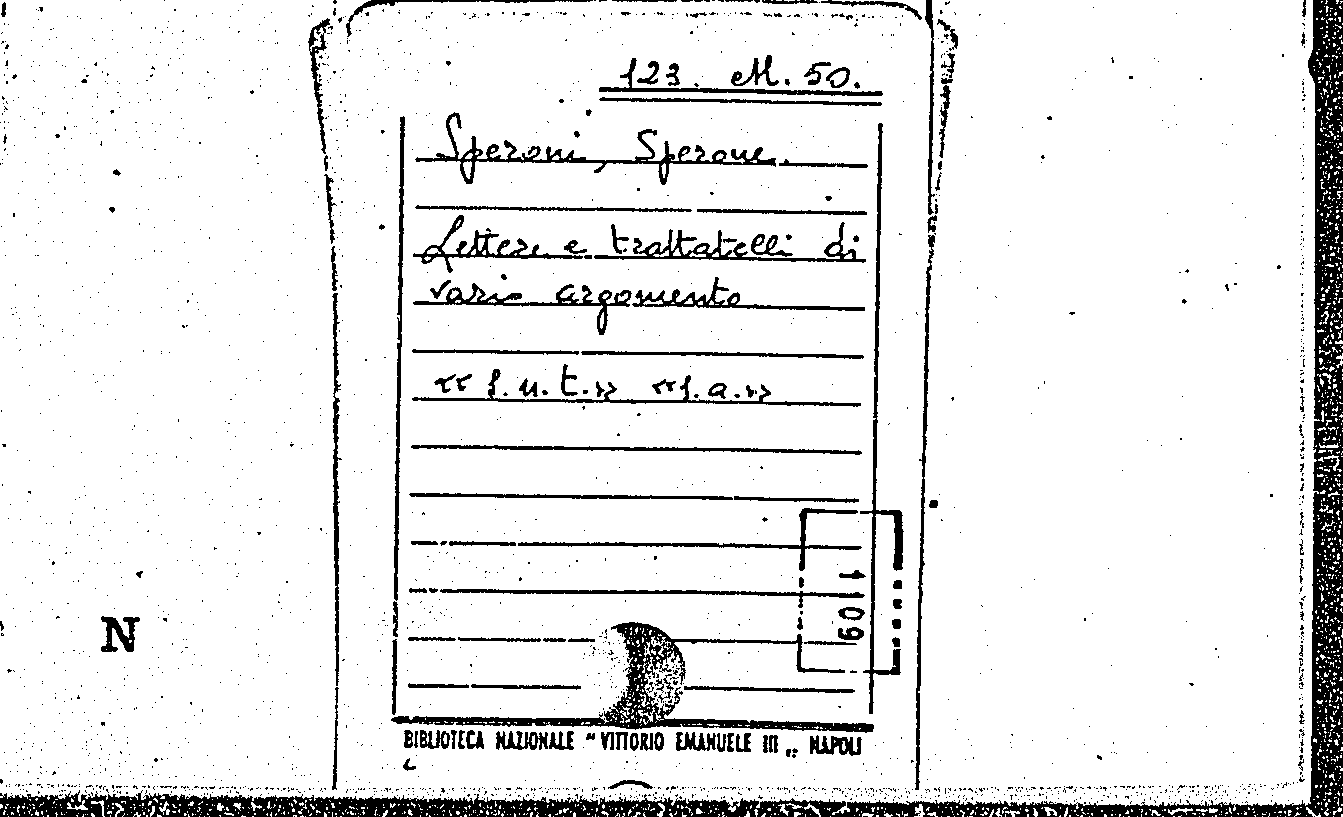 123. M. 50.
Speroni, Sperone.
Lettere e trattatelli di
vario argomento
«s.n.t.» «s.a.»
1109
N
BIBLIOTECA NAZIONALE " VITTORIO EMANUELE III „ NAPOLI